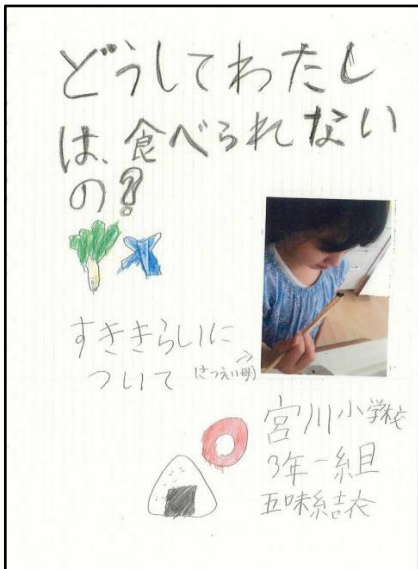 どうしてわたし
は、食べられない
の?
すききらいに
ついて
(さつえい母)
宮川小学校
3年一組
五味結衣